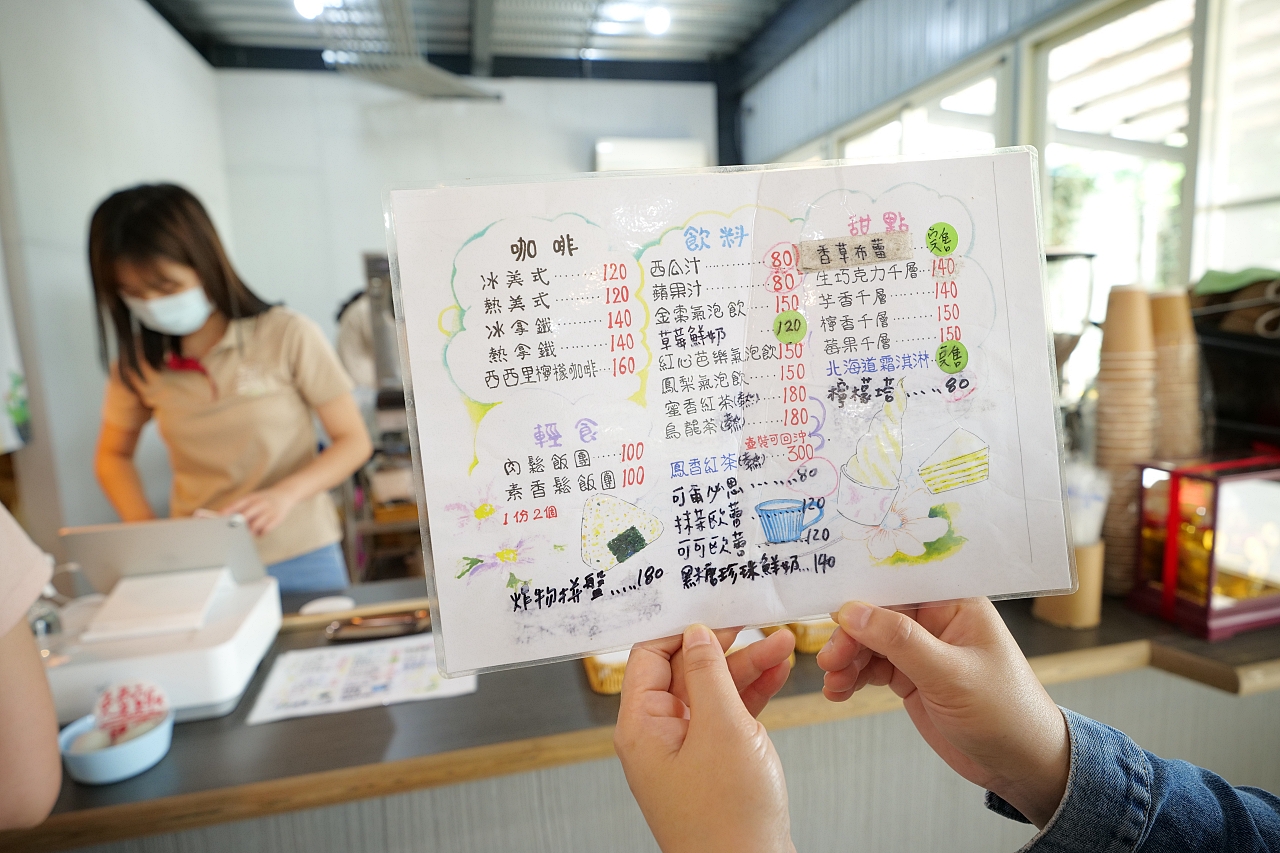 咖啡
冰美式……120
熱美式……120
冰拿鐵……140
熱拿鐵……140
西西里檸檬咖啡…160
輕食
肉鬆飯團……100
素香鬆飯團…100
1份2個
炸物拼盤.....180
飲料
西瓜汁……80
蘋果汁……80
金棗氣泡飲……150
草莓鮮奶 120
紅心芭樂氣泡飲150
鳳梨氣泡飲……150
蜜香紅茶(熱)……180
烏龍茶(熱)……180
壺裝可回沖
鳳香紅茶(熱)……300
可爾必思......80
抹茶歐蕾......120
可可歐蕾......120
黑糖珍珠鮮奶...140
甜點
香草布蕾 完售
生巧克力千層…140
芋香千層……140
檸香千層……150
莓果千層……150
北海道霜淇淋 完售
檸檬塔.....80